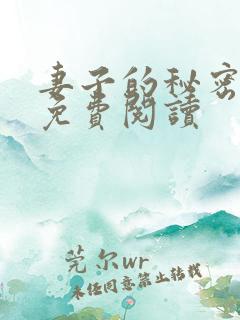 妻子的秘密
免費閱讀
莞尔wr
未经同意禁止转载